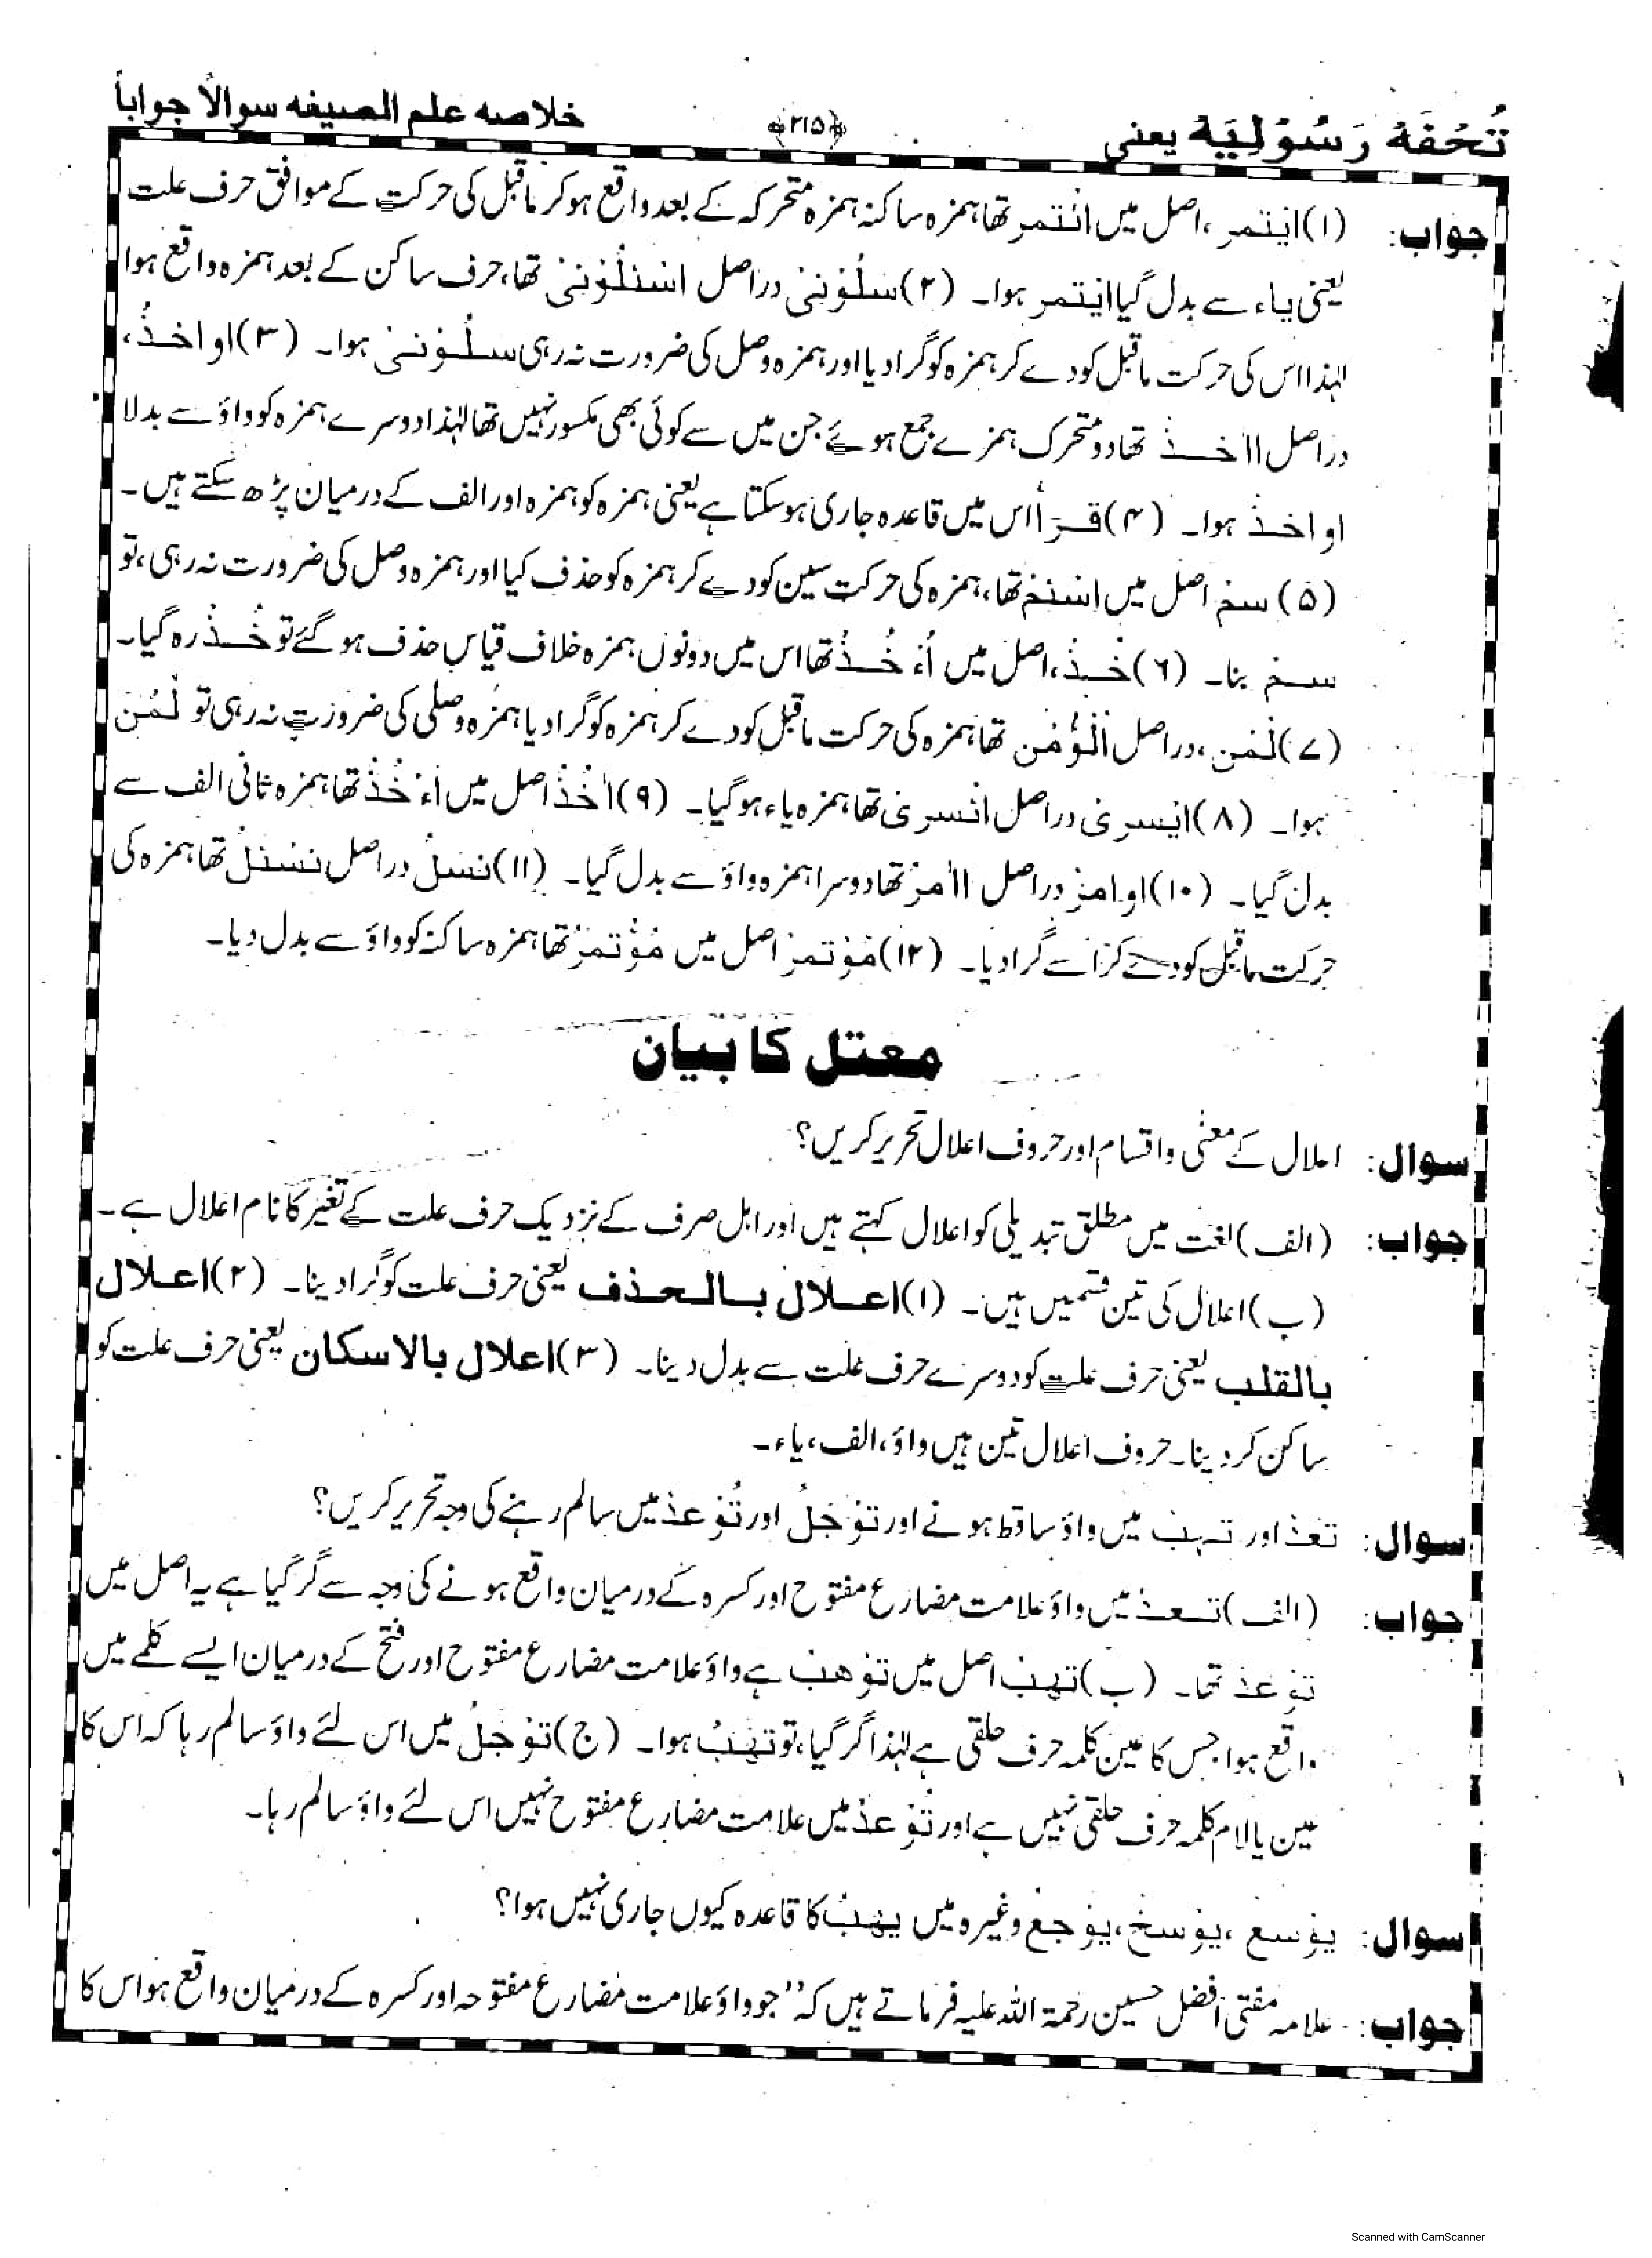 تُحْفَهْ رَسُوْلِیَهْ یعنی ﴿۲۱۵﴾ خلاصه علم الصیغه سوالاً جواباً
جواب: (۱) ایتمر، اصل میں ائتمر تھا ہمزہ ساکنہ ہمزہ متحرکہ کے بعد واقع ہو کر ماقبل کی حرکت کے موافق حرف علت
یعنی یاء سے بدل گیا ایتمر ہوا۔ (۲) سَلُوْنِیْ دراصل اسْئَلُوْنِیْ تھا، حرف ساکن کے بعد ہمزہ واقع ہوا
لہٰذا اس کی حرکت ماقبل کو دے کر ہمزہ کو گرا دیا اور ہمزہ وصل کی ضرورت نہ رہی سلُوْنِیْ ہوا۔ (۳) اواخذُ،
دراصل ااٰخذ تھا دو متحرک ہمزے جمع ہوئے جن میں سے کوئی بھی مکسور نہیں تھا لہٰذا دوسرے ہمزہ کو واؤ سے بدلا
اواخذ ہوا۔ (۴) قرأ اس میں قاعدہ جاری ہو سکتا ہے یعنی ہمزہ کو ہمزہ اور الف کے درمیان پڑھ سکتے ہیں۔
(۵) سم اصل میں اسئم تھا، ہمزہ کی حرکت سین کو دے کر ہمزہ کو حذف کیا اور ہمزہ وصل کی ضرورت نہ رہی، تو
سم بنا۔ (۶) خُذْ، اصل میں أُءْخُذْ تھا اس میں دونوں ہمزہ خلاف قیاس حذف ہو گئے تو خُذْ رہ گیا۔
(۷) لُمْن، دراصل اُلْؤُمْن تھا ہمزہ کی حرکت ماقبل کو دے کر ہمزہ کو گرا دیا ہمزہ وصلی کی ضرورت نہ رہی تو لُمْن
ہوا۔ (۸) ایسری دراصل ائسری تھا ہمزہ یاء ہو گیا۔ (۹) اٰخُذُ اصل میں أءْخُذُ تھا ہمزہ ثانی الف سے
بدل گیا۔ (۱۰) اوامر دراصل ااٰمر تھا دوسرا ہمزہ واؤ سے بدل گیا۔ (۱۱) نَسَلُ دراصل نَسْئَلُ تھا ہمزہ کی
حرکت ماقبل کو دے کر اسے گرا دیا۔ (۱۲) مُوْتمر اصل میں مُؤْتمر تھا ہمزہ ساکنہ کو واؤ سے بدل دیا۔
معتل کا بیان
سوال: اعلال کے معنٰی و اقسام اور حروف اعلال تحریر کریں؟
جواب: (الف) لغت میں مطلق تبدیلی کو اعلال کہتے ہیں اور اہل صرف کے نزدیک حرف علت کے تغیر کا نام اعلال ہے۔
(ب) اعلال کی تین قسمیں ہیں۔ (۱) اعلال بالحذف یعنی حرف علت کو گرا دینا۔ (۲) اعلال
بالقلب یعنی حرف علت کو دوسرے حرف علت سے بدل دینا۔ (۳) اعلال بالاسکان یعنی حرف علت کو
ساکن کر دینا۔ حروف اعلال تین ہیں واؤ، الف، یاء۔
سوال: تعدُ اور تہبُ میں واؤ ساقط ہونے اور تَوْجَلُ اور تُوْعَدُ میں سالم رہنے کی وجہ تحریر کریں؟
جواب: (الف) تعدُ میں واؤ علامت مضارع مفتوح اور کسرہ کے درمیان واقع ہونے کی وجہ سے گر گیا ہے یہ اصل میں
توعد تھا۔ (ب) تَهَبُ اصل میں تَوْهَبُ ہے واؤ علامت مضارع مفتوح اور فتح کے درمیان ایسے کلمے میں
واقع ہوا جس کا عین کلمہ حرف حلقی ہے لہٰذا گر گیا، تو تَهَبُ ہوا۔ (ج) تَوْجَلُ میں اس لئے واؤ سالم رہا کہ اس کا
عین یا لام کلمہ حرف حلقی نہیں ہے اور تُوْعَدُ میں علامت مضارع مفتوح نہیں اس لئے واؤ سالم رہا۔
سوال: یوْسع، یوْسخ، یوْجع وغیرہ میں یهبُ کا قاعدہ کیوں جاری نہیں ہوا؟
جواب: علامہ مفتی افضل حسین رحمۃ اللہ علیہ فرماتے ہیں کہ ”جو واؤ علامت مضارع مفتوحہ اور کسرہ کے درمیان واقع ہو اس کا
Scanned with CamScanner